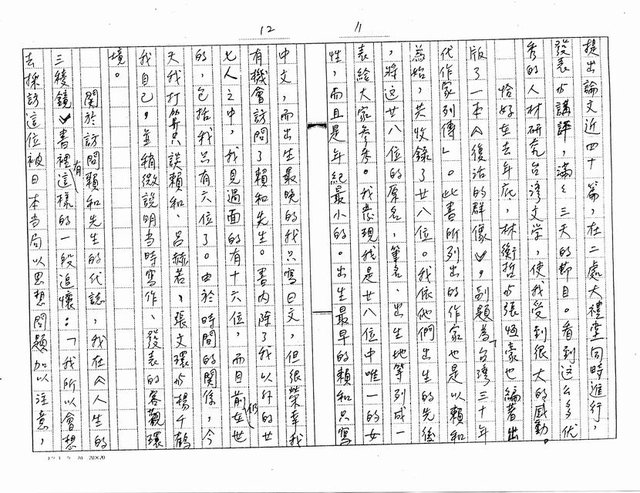 11
提出論文近四十篇，在二處大禮堂同時進行，
發表与講評，滿滿三天的節目。看到這么多优
秀的人材研究台湾文学，使我受到很大的感動。
恰好在去年底，林衡哲与張恆豪也編著出
版了一本《復活的群像》，副題為「台湾三十年
代作家列傳」。此書所列出的作家也是以賴和
為始，共收錄了廿八位。我依他們出生的先後
，將這廿八位的原名，筆名、出生地等列成一
表給大家參考。我發現我是廿八位中唯一的女
性，而且是年紀最小的。出生最早的賴和只寫
12
中文，而出生最晚的我只寫日文，但很榮幸我
有機會訪問了賴和先生。書內除了我以外的廿
七人之中，我見過面的有十六位，而目前仍在世
的，包括我只有六位了。由於時間的關係，今
天我打算只談賴和、呂赫若，張文環与楊千鶴
我自己，並稍微說明当時寫作、發表的客觀環
境。
關於訪問賴和先生的代誌，我在《人生的
三稜鏡》書裡有這樣的一段追懷：「我所以會想
去採訪這位被日本当局以思想問題加以注意，